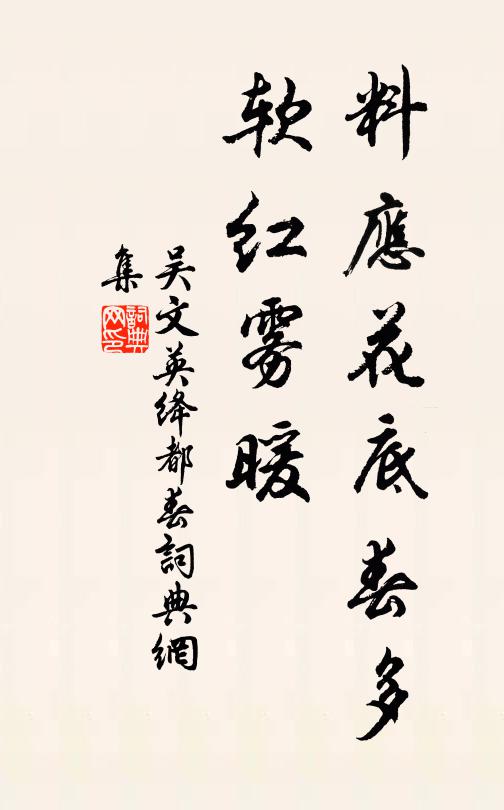 料應花底春多
软红雾暖
吴文英绛都春詞典網
集
詞典网印